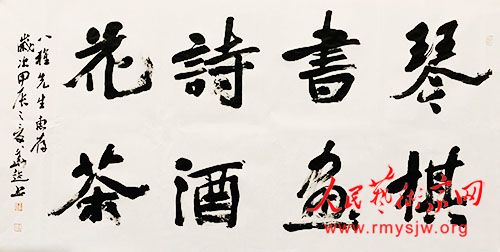 琴棋
書畫
詩酒
花茶
先生惠存
歲次甲辰之夏
人民藝術家网
www.rmysjw.org